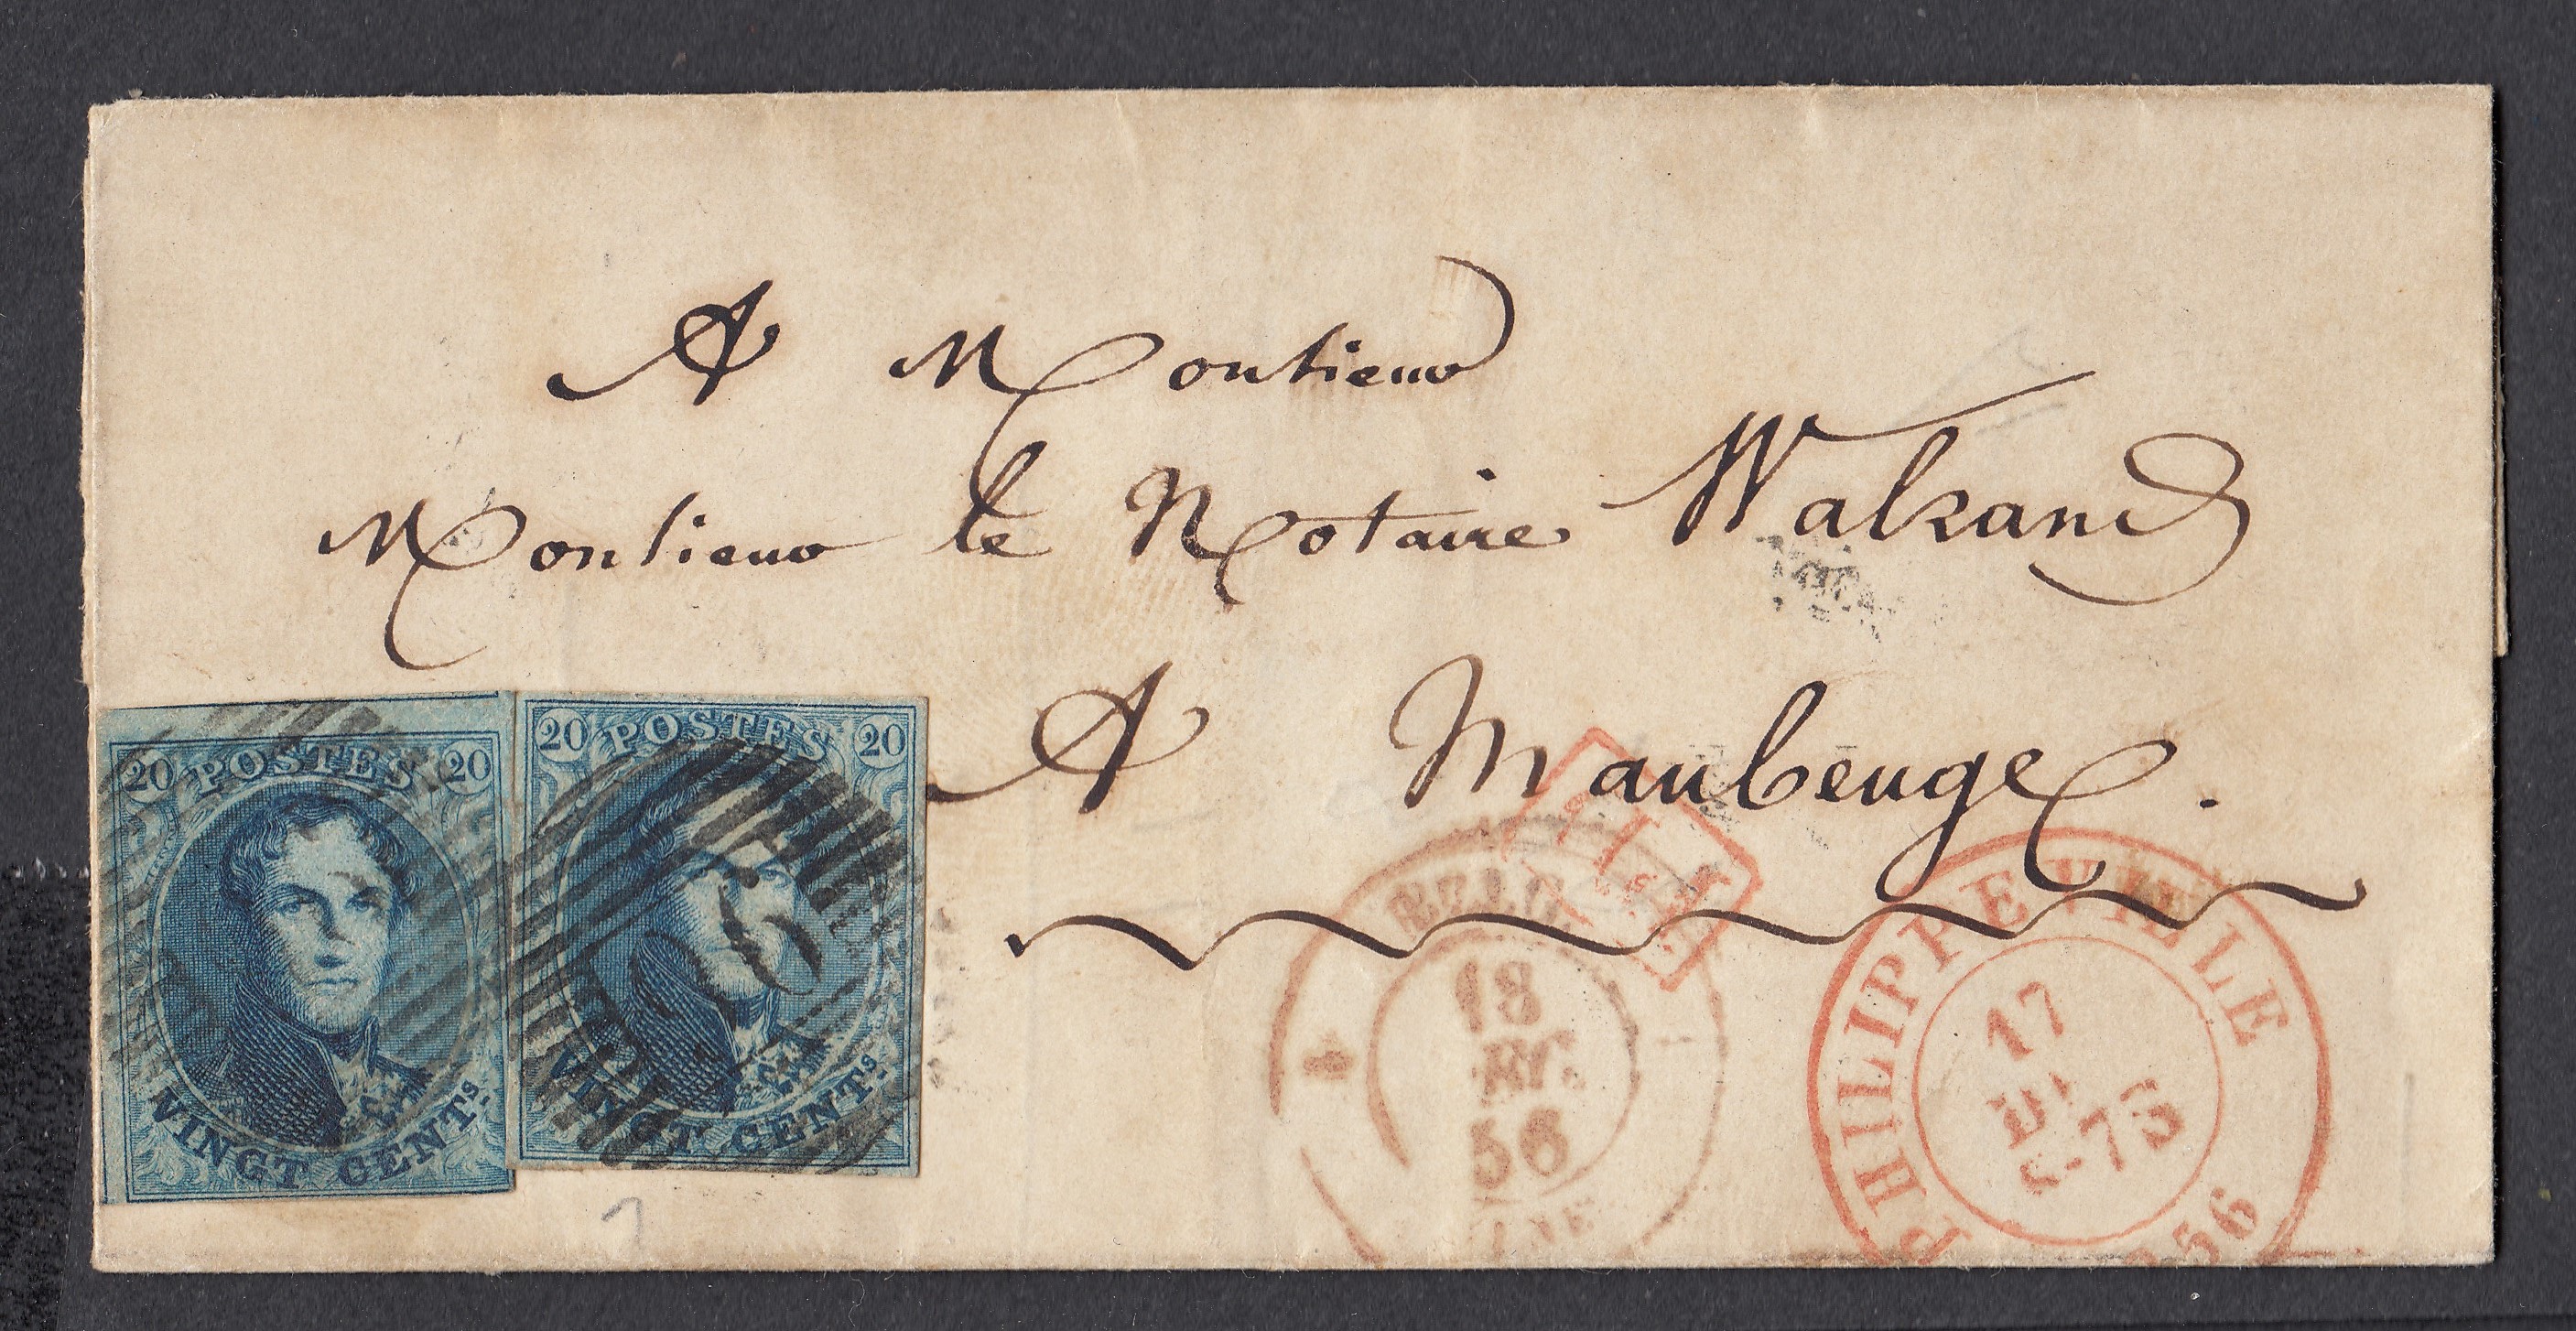 A Monsieur
Monsieur le Notaire Walrand
A Maubeuge.
20 POSTES 20
VINGT CENTS.
20 POSTES 20
VINGT CENTS.
BELG.
18
56
PHILIPPEVILLE
17
5-75
56